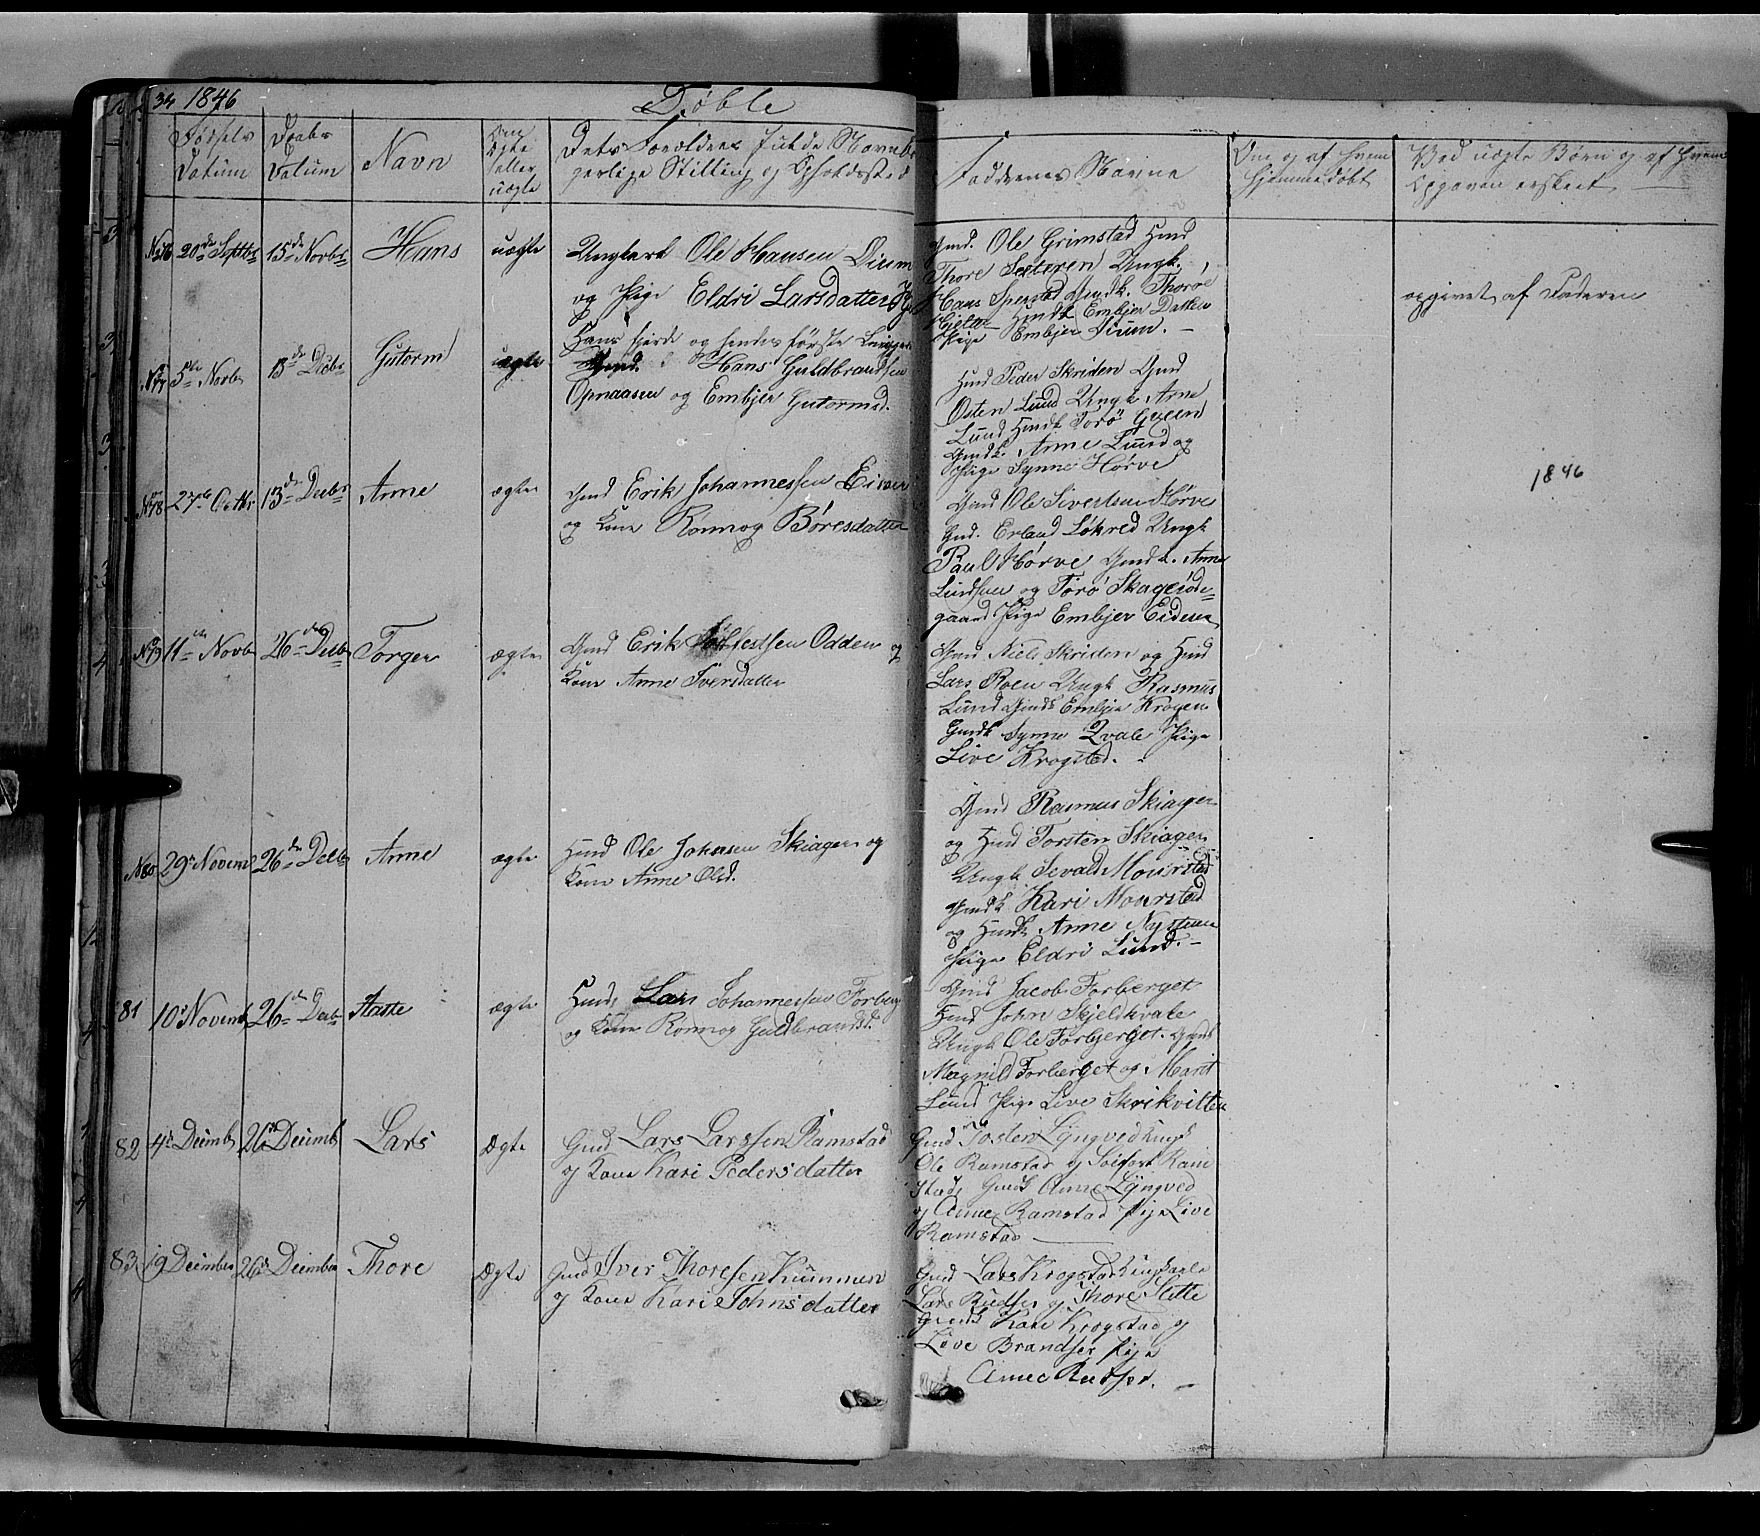 34 1846
Døbte
Fødsels Datum
Daabs Datum
Navn
Om Ægte eller uægte
Dets Forældres fulde Navn bor-
gerlige Stilling og Opholdssted
Faddernes Navne
Om og af hvem
hjemmedøbt
Ved uægte Børn og af hvem
Opgaven er skeet
No 76 20de Septbr 15de Novbr Hans uægte
Ungkarl Ole Hansen Oium
og Pige Eldri Larsdatter
Hans fjerde og hendes første
Gmd. Ole Grimstad Hmd
Thore Sætren Ungk.
Hans Sperstad Gmdk. Thoroe
Hjelle Hmdk Embjør Dakken
Pige Embjør Oium.
opgivet af Faderen
No 77 5te Novb 13de Decbr Gutorm uægte
Hans Guldbrandsen
Opnaasen og Embjør Gutormsd.
Hmd Peder Skriden Gmd
Osten Lund Ungk Arne
Lund Hmdk Torø
Gmdk. Anne Lund og
Pige Synne Hørve
No 78 27de Octbr 13de Decbr Anne ægte
Gmd Erik Johannessen
og Kone Rønnog Børesdatter
Gmd Ole Sivertsen Hørve
Gmd. Erland Løkred Ungk
Paul Hørve Gmdk. Anne
og Torø Skageøde-
gaard Pige Embjør Eideen
1846
No 79 11te Novb 26de Decbr Torger ægte
Gmd Erik Odden og
Kone Anne Iversdatter
Gmd Niels Skriden og Hmd
Lars Roen Ungk Rasmus
Lund Gmdk Embjør Krogen
Gmdk Synne Qvale Pige
Live Krogsted.
No 80 29de Novem 26de Decbr Anne ægte
Hmd Ole Johnsen Skiager og
Kone Anne Olsd.
Gmd Rasmus Skiager
og Hmd Torsten Skiager
Ungk Sevald Mourstad
Gmdk Kari Mourstad
og Hmdk Anne Nysteen
Pige Eldri Lund.
81 10de Novemb 26de Decbr Aaste ægte
Hmd Lars Johannessen Forberg
og Kone Rønnog Guldbrandsd.
Gmd Jacob Forberget
Hmd John Skjeldkvale
Ungk Ole Forbjerget. Gmdk
Magnild Forberget og Marit
Lund Pige Live Skrikvilten
82 4de Decemb 26de Decemb Lars Ægte
Gmd Lars Larssen Ramstad
og Kone Kari Pedersdatter
Gmd Tosten Lyngved Ungk
Ole Ramstad og Seifort Ram
stad, Gmdk Anne Lyngved
og Anne Ramstad Pige Live
Ramstad
83 19 December 26de December Thore Ægte
Gmd Iver Thoresen Kummen
og Kone Kari Johnsdatter
Gmd Lars Krogstad Ungkarle
Lars Rudser og Thore Slette
Gmdk Kari Krogstad og
Live Brandser Pige
Anne Rudser.